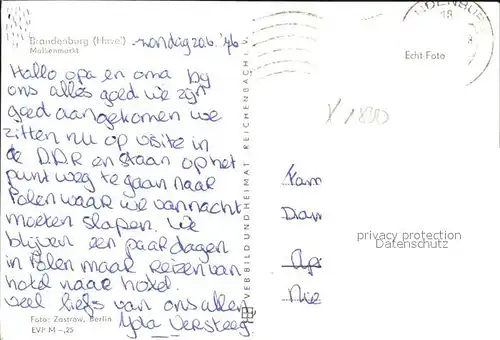 Brandenburg (Havel)
Molkenmarkt
zondag 20.6.'76
Hallo opa en oma bij
ons alles goed we zijn
goed aangekomen we
zitten nu op visite in
de D.D.R en staan op het
punt weg te gaan naar
Polen waar we vannacht
moeten slapen. We
blijven een paar dagen
in Polen maar reizen van
hotel naar hotel.
veel liefs van ons allen
Versteeg
Foto: Zastrow, Berlin
EVP M -,25
VEB BILD UND HEIMAT REICHENBACH i. V.
18
Echt Foto
Fam
privacy protection
Datenschutz